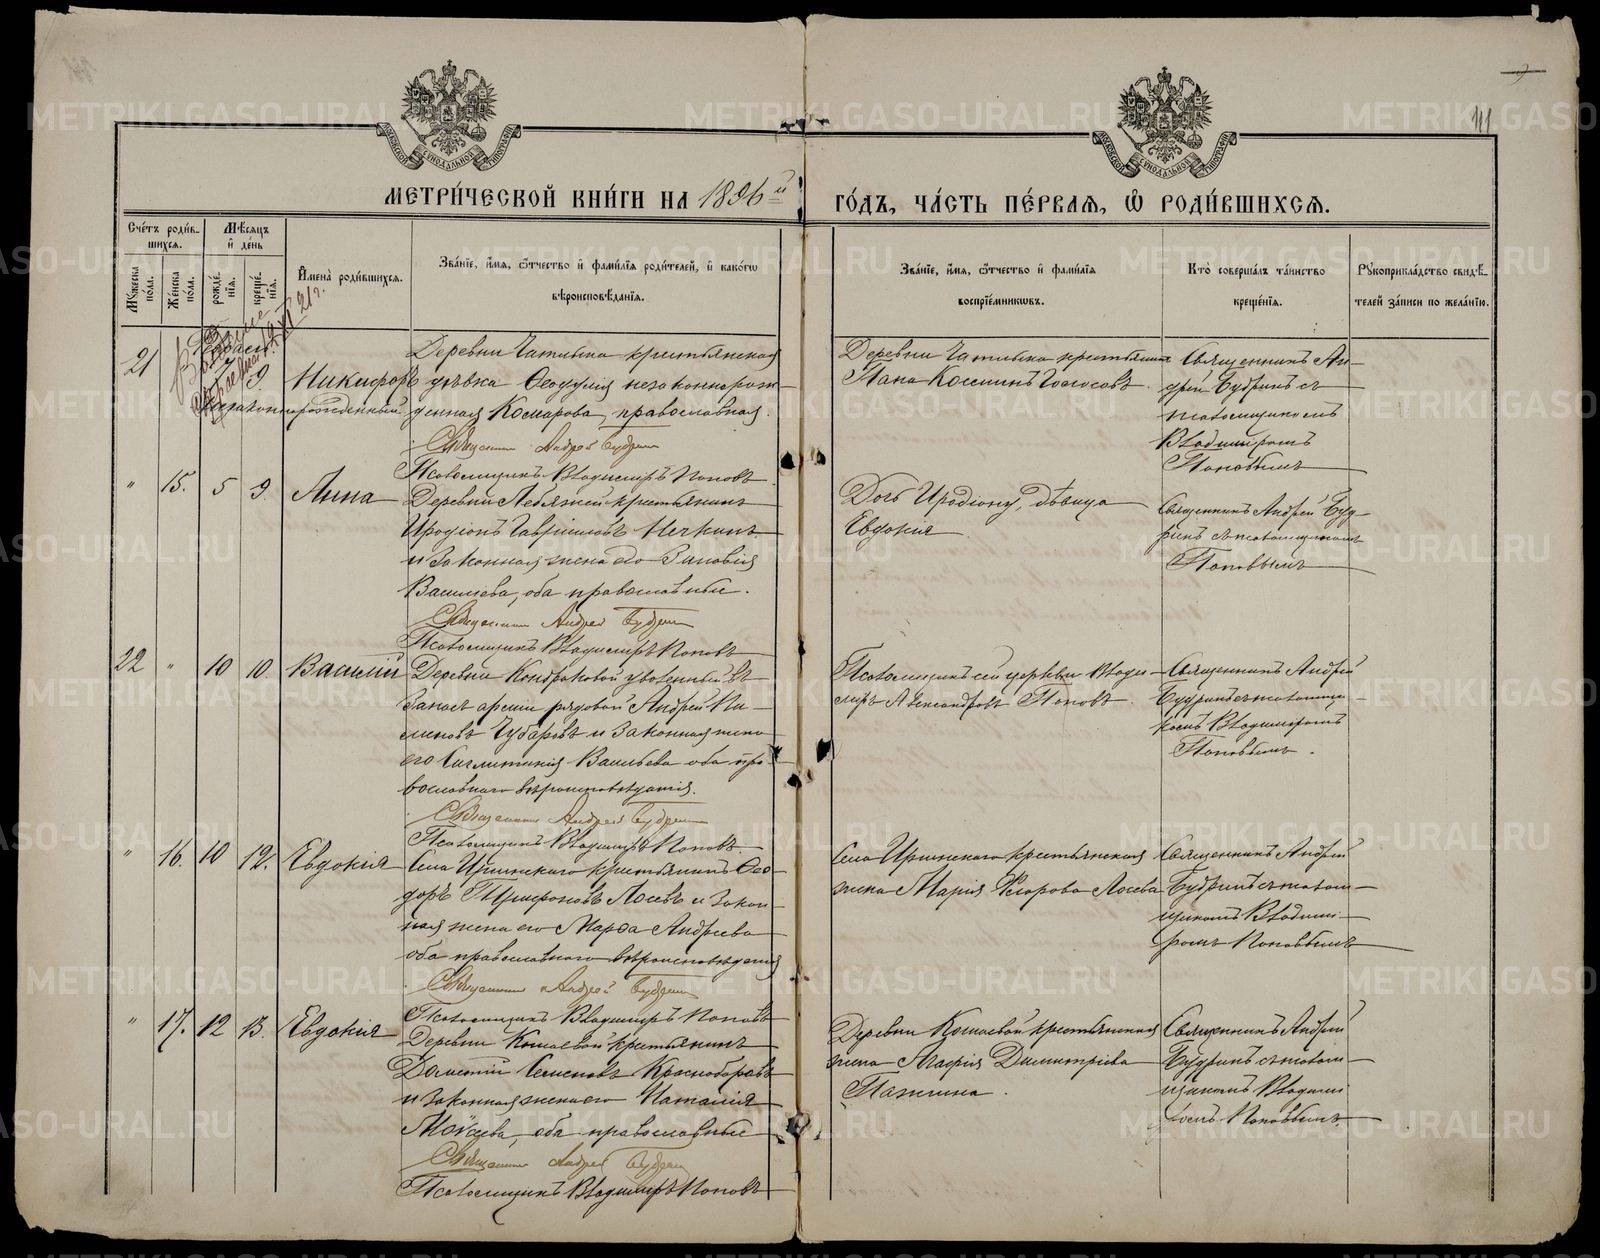 111
МЕТРИ́ЧЕСКОЙ КНИ́ГИ НА 1896 й
ГО́ДЪ, ЧА́СТЬ ПЕ́РВАѦ, Ѽ РОДИ́ВШИХСѦ.
Сче́тъ роди́в-
шихсѧ.
Мѣ́сѧцъ
и҆ де́нь
Му́жеска по́ла.
Же́нска по́ла.
рожде́нїѧ.
креще́нїѧ.
И҆мена̀ роди́вшихсѧ.
Зва́нїе, и҆́мѧ, ѻ҆́тчество и҆ фами́лїѧ роди́телей, и҆ како́гѡ
вѣроисповѣ́данїѧ.
Зва́нїе, и҆́мѧ, ѻ҆́тчество и҆ фами́лїѧ
воспрїе́мникѡвъ.
Кто̀ соверша́лъ та́инство
креще́нїѧ.
Рꙋкоприкла́дство свидѣ́-
телей за́писи по жела́нїю.
21 9. Никифоръ
незаконнорожденный
Деревни крестьянская
дѣвка Ѳеодулія незаконнорож-
денная Комарова, православная.
Священникъ Андрей Будринъ
Псаломщикъ Владиміръ Поповъ
Деревни крестьянинъ
Священникъ Ан-
дрей Будринъ съ
псаломщикомъ
Владиміромъ
Поповымъ
" 15. 5 9. Анна
Деревни Лебяжей крестьянинъ
Иродіонъ Гавріиловъ
и законная жена его Зиновія
Васильева, оба православные.
Священникъ Андрей Будринъ
Псаломщикъ Владиміръ Поповъ
Дочь Иродіону, дѣвица
Евдокія
Священникъ Андрей Буд-
ринъ съ псаломщикомъ
Поповымъ
22 " 10 10. Василій
Деревни Кондраковой уволенный въ
запасъ арміи рядовой Андрей
Чубаровъ и законная жена
его Васильева оба пра-
вославнаго вѣроисповѣданія.
Священникъ Андрей Будринъ
Псаломщикъ Владиміръ Поповъ
Псаломщикъ сей церкви Влади-
міръ Александровъ Поповъ.
Священникъ Андрей
Будринъ съ псаломщи-
комъ Владиміромъ
Поповымъ.
" 16. 10 12. Евдокія
Села Иргинскаго крестьянинъ Ѳео-
доръ Лосевъ и закон-
ная жена его Марѳа Андреева
оба православнаго вѣроисповѣданія
Священникъ Андрей Будринъ
Псаломщикъ Владиміръ Поповъ
Села Иргинскаго крестьянская
жена Марія Лосева
Священникъ Андрей
Будринъ съ псалом-
щикомъ Владими-
ромъ Поповымъ
" 17. 12 13. Евдокія
Деревни Кошаевой крестьянинъ
Дометій Семеновъ Краснобаровъ
и законная жена его Наталія
Моисеева, оба православные
Священникъ Андрей Будринъ
Псаломщикъ Владиміръ Поповъ
Деревни Кошаевой крестьянская
жена Агафія Димитріева
Священникъ Андрей
Будринъ съ псалом-
щикомъ Влади-
ромъ Поповымъ
METRIKI.GASO-URAL.RU